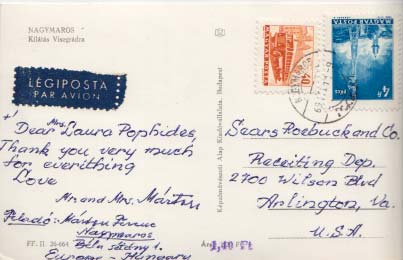 NAGYMAROS
Kilátás Visegrádra
LÉGIPOSTA
PAR AVION
Dear Mrs Laura Pophides,
Thank you very much
for everithing
Love
Mr and Mrs. Mártsy
Feladó: Mártsy Ferenc
Nagymaros
Béla sétány 1.
Europe - Hungary
FF. II. 26-664
Képzőművészeti Alap Kiadóvállalata, Budapest
40
MAGYAR POSTA
4 Ft
MAGYAR POSTA
Sears Roebuck and Co.
Receiting Dep.
2700 Wilson Blvd
Arlington, Va.
U.S.A.
1,40 Ft